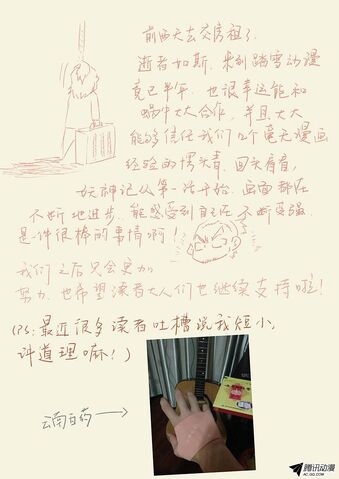 前两天去交房租了
逝者如斯，来到踏雪动漫
竟已半年，也很幸运能和
蜗牛大大合作，并且大大
能够信任我们几个毫无漫画
经验的愣头青，回头看看，
妖神记从第一话开始，画面都在
不断地进步，能感受到自己在不断变强
是一件很棒的事情啊！
我们之后只会更加
努力，也希望读者大人们也继续支持啦！
(PS:最近很多读者吐槽说我短小，
讲道理嘛！)
云南白药
腾讯动漫
AC.QQ.COM